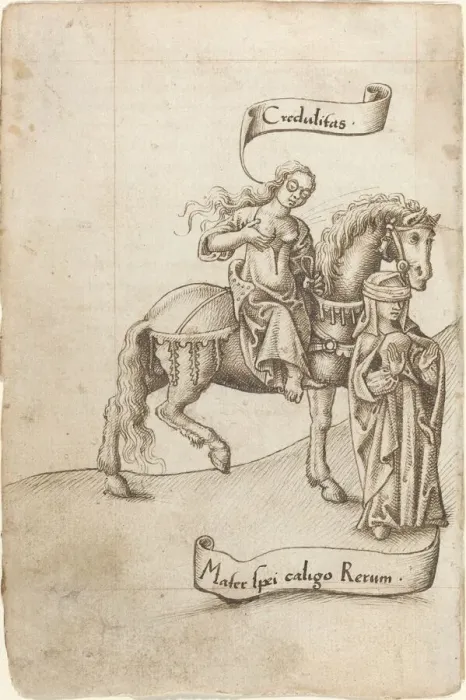 Credulitas ·
Mater spei caligo Rerum ·